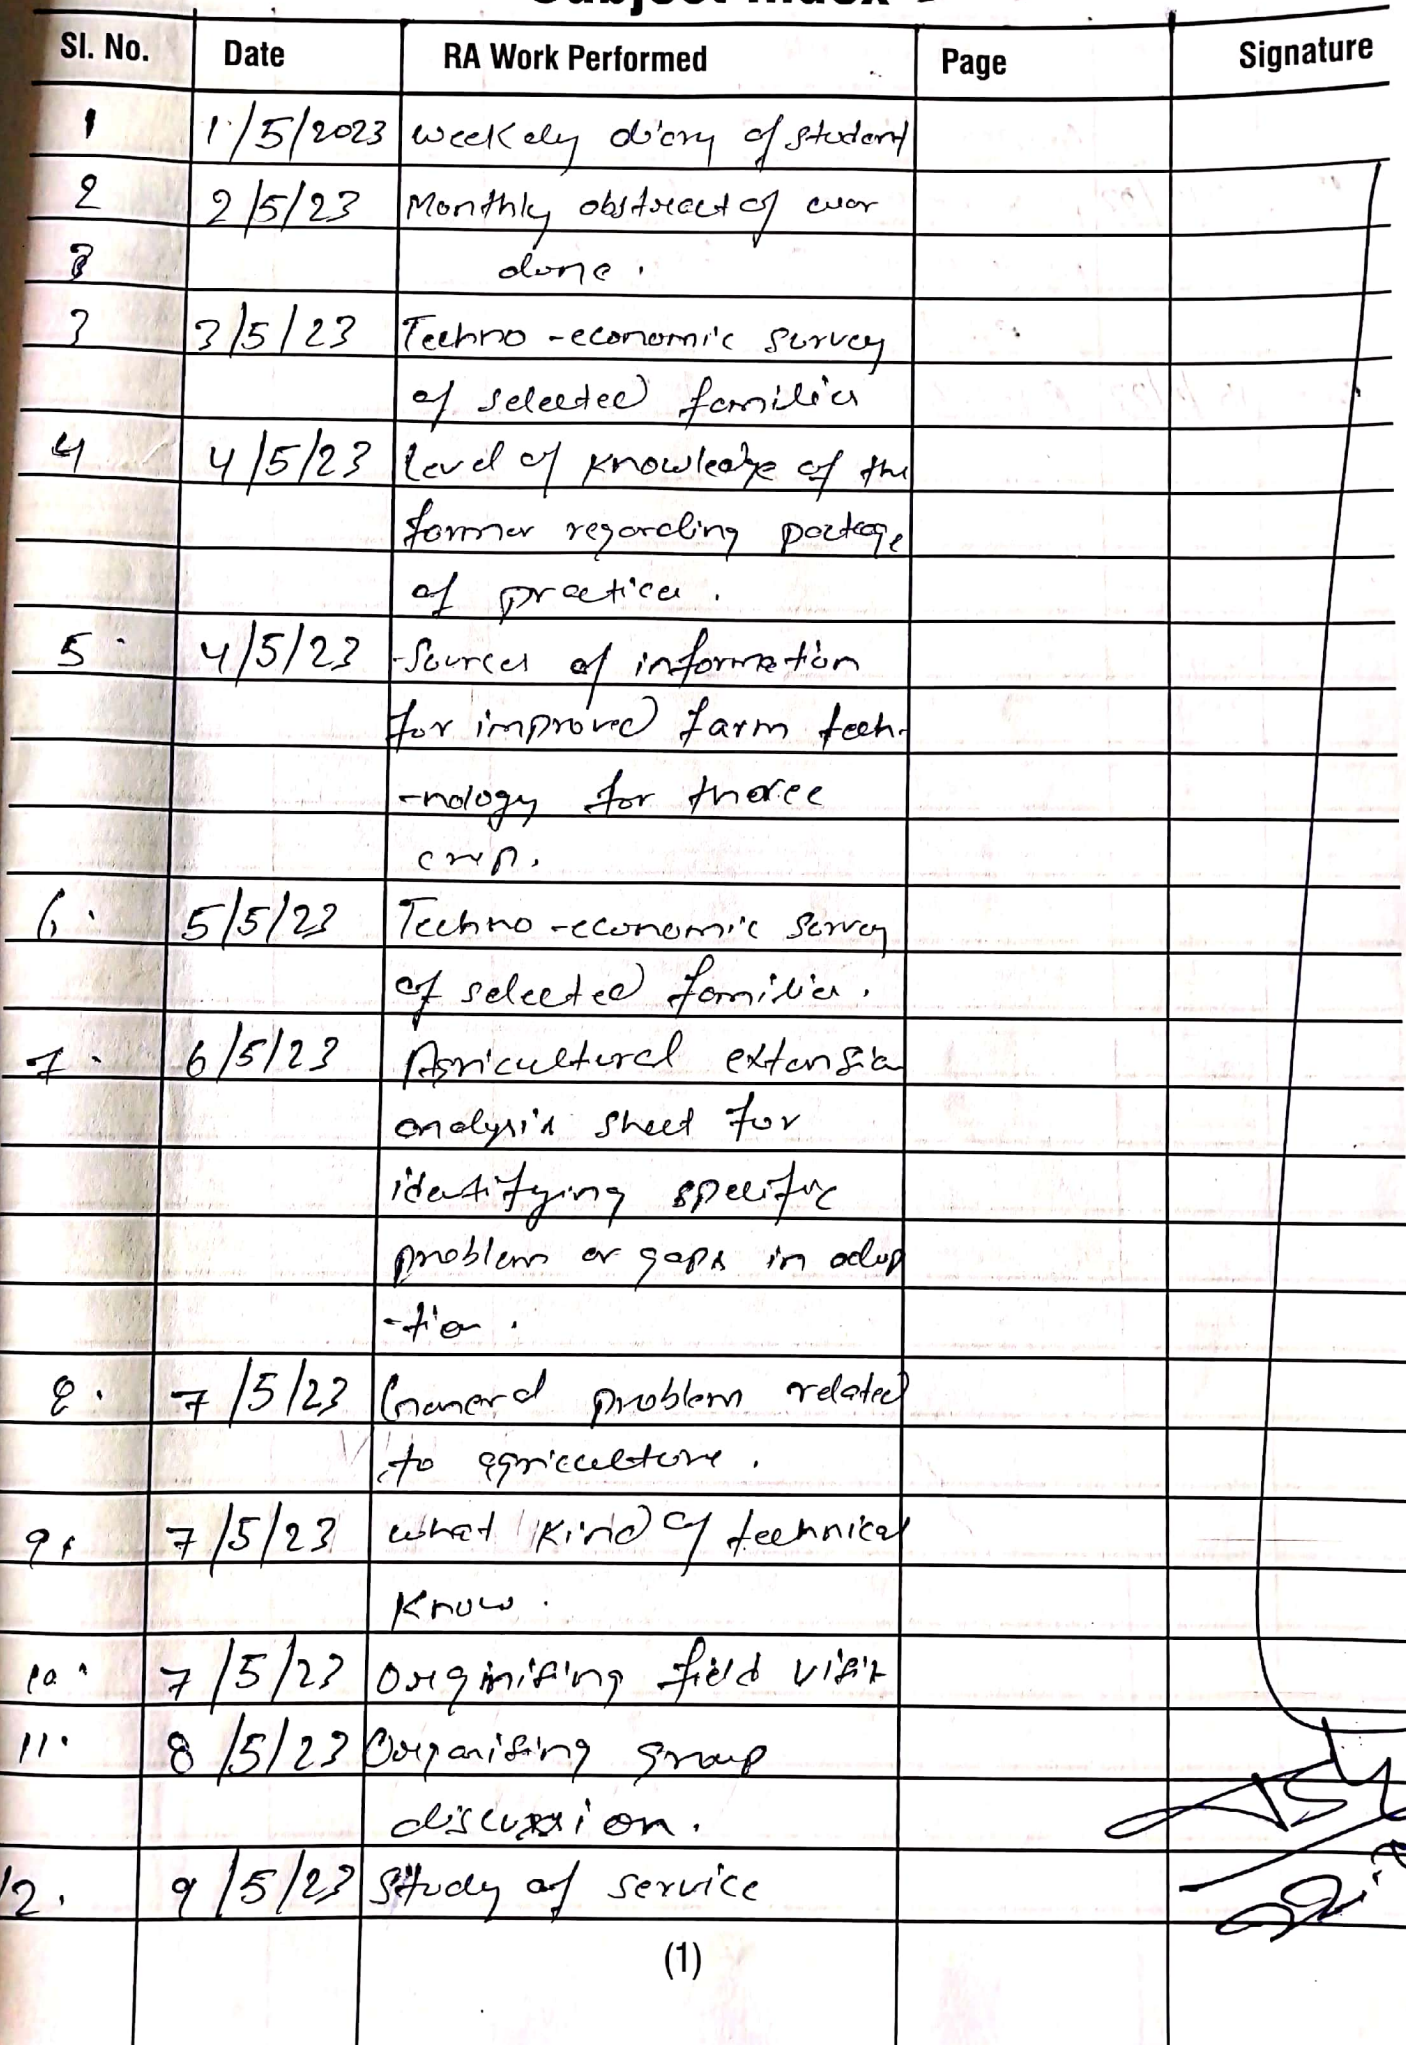 Subject Index
Sl. No. Date RA Work Performed Page Signature
1 1/5/2023 weekely diary of student
2 2/5/23 Monthly abstract of
3 done.
3 3/5/23 Techno-economic survey
of selected families
4 4/5/23 level of knowledge of the
farmer regarding package
of practices.
5 4/5/23 -Sources of information
for improved farm tech-
-nology for three
crop.
6. 5/5/23 Techno-economic survey
of selected families.
7. 6/5/23 Agricultural extension
analysis sheet for
identifying specific
problem or gaps in adop
-tion.
8. 7/5/23 General problem related
to agriculture.
9. 7/5/23 what kind of technical
know.
10. 7/5/23 field visit
11. 8/5/23 Organising group
discussion.
12. 9/5/23 Study of service
(1)